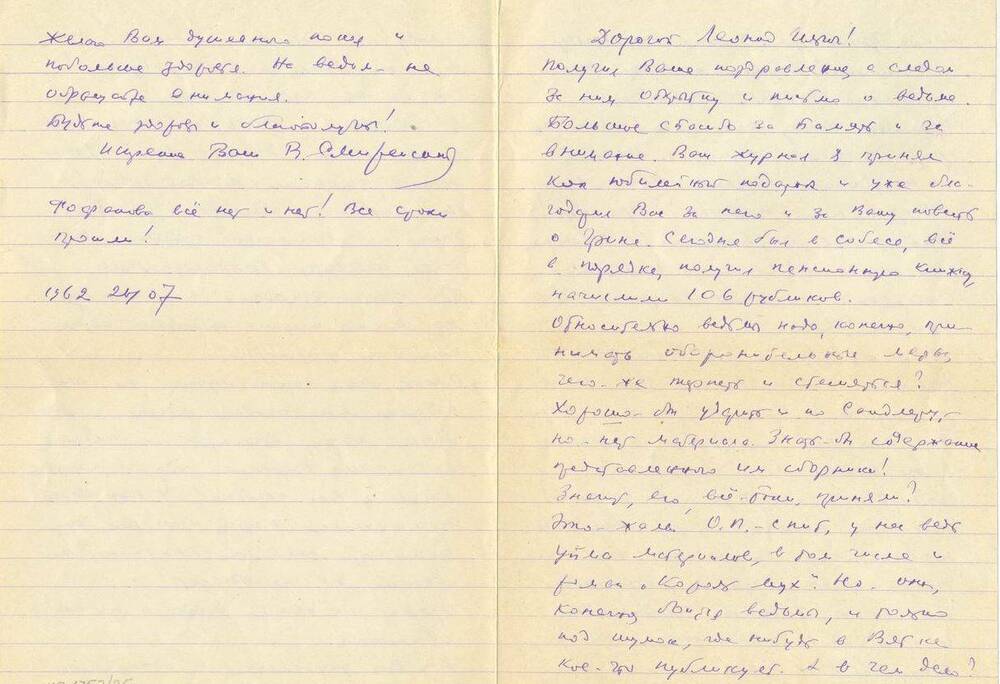 Дорогой Леонид Ильич!
Получил Ваше поздравление, а следом
за ним открытку и письмо о ведьме.
Большое спасибо за память и за
внимание. Ваш журнал я принял
как юбилейный подарок и уже бла-
годарил Вас за него и за Вашу повесть
о Грине. Сегодня был в собесе, всё
в порядке, получил пенсионную книжку,
начислили 106 рубликов.
Относительно ведьмы надо, конечно, при-
нимать оборонительные меры,
чего-же терпеть и стесняться?
Хорошо-бы ударить и по Сандлеру,
но-нет материала. Знать-бы содержание
представленного им сборника!
Значит, его, всё-таки, приняли?
Это-жаль. О.П.-спит, у нее ведь
уйма материалов, в том числе и
роман "Король мух". Но она,
конечно боится ведьмы, и только
под шумок, где нибудь в Вятке
кое-что публикует. А в чем дело?
Желаю Вам душевного покоя и
побольше здоровья. На ведьм-не
обращайте внимания.
Будьте здоровы и благополучны!
Искренно Ваш В.
всё нет и нет! Все сроки
прошли!
1962 24/07